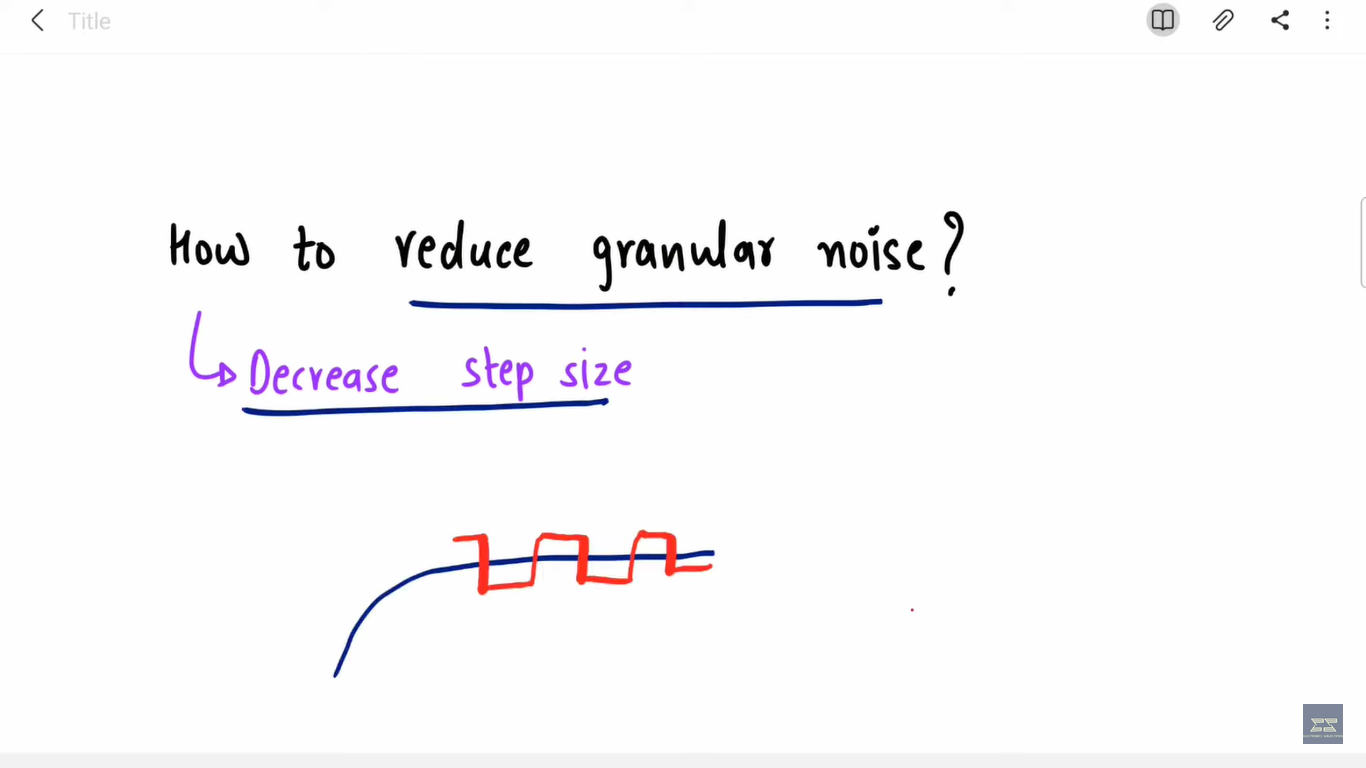 Title
How to reduce granular noise?
Decrease step size